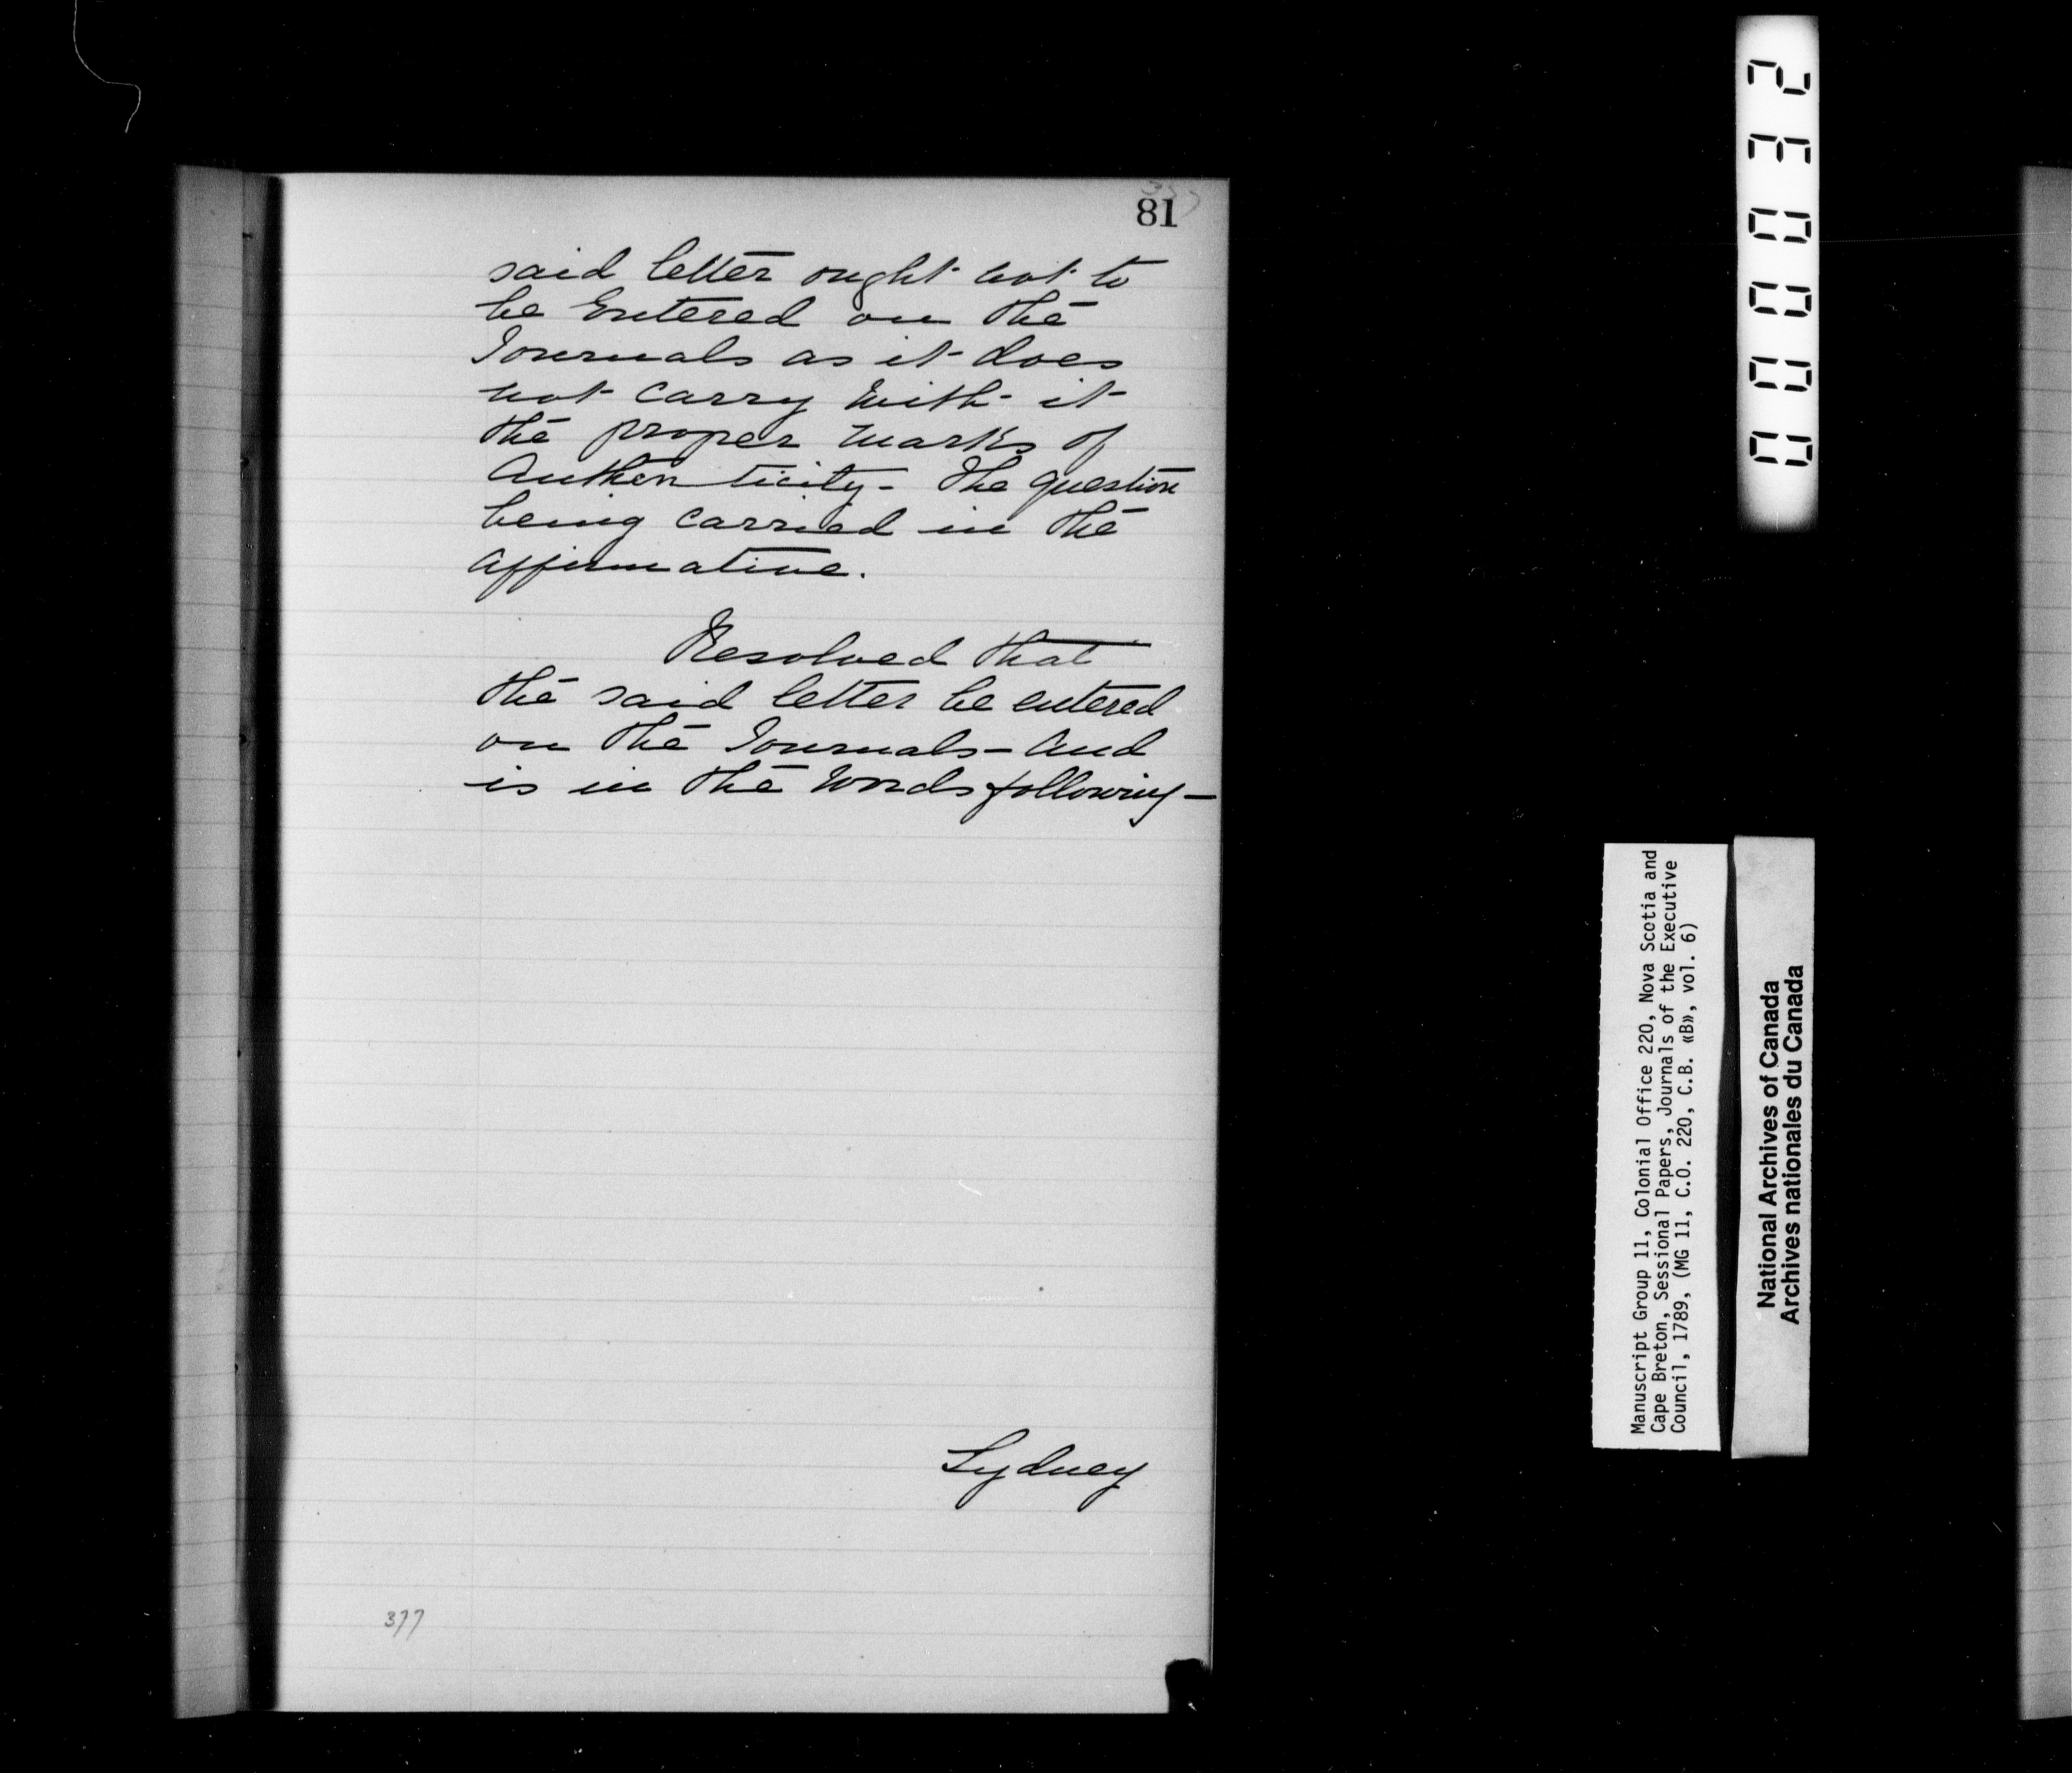 81
said letter ought not to
be Entered on the
Journals as it does
not carry with it
the proper marks of
Authenticity - The question
being carried in the
affirmative.
Resolved that
the said letter be entered
on the Journals - And
is in the words following -
Sydney
377
000032
Manuscript Group 11, Colonial Office 220, Nova Scotia and
Cape Breton, Sessional Papers, Journals of the Executive
Council, 1789, (MG 11, C.O. 220, C.B. «B», vol. 6)
National Archives of Canada
Archives nationales du Canada